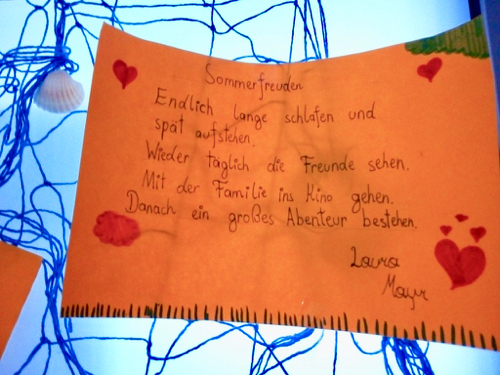 Sommerfreuden
Endlich lange schlafen und
spät aufstehen.
Wieder täglich die Freunde sehen.
Mit der Familie ins Kino gehen.
Danach ein großes Abenteur bestehen.
Laura